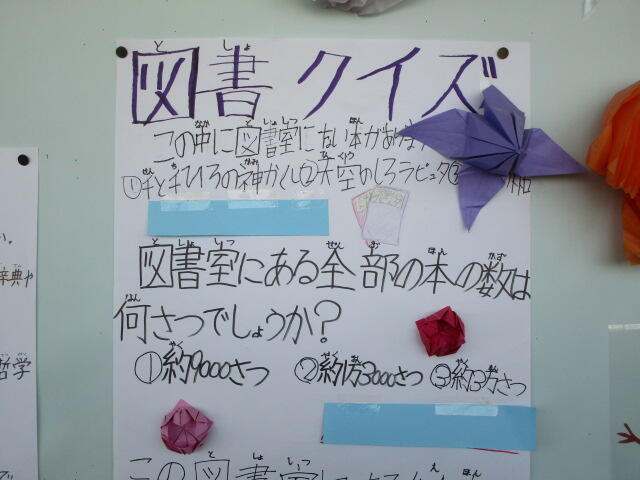 図書クイズ
この中に図書室にない本があります
①千と千ひろの神かくし②天空のしろラピュタ③
図書室にある全部の本の数は
何さつでしょうか?
①約9000さつ ②約1万3000さつ ③約3万さつ
この図書室に
辞典や
哲学